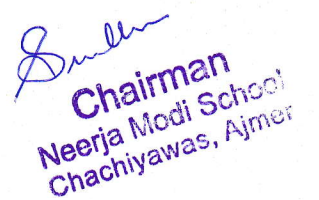 Chairman
Neerja Modi School
Chachiyawas, Ajmer